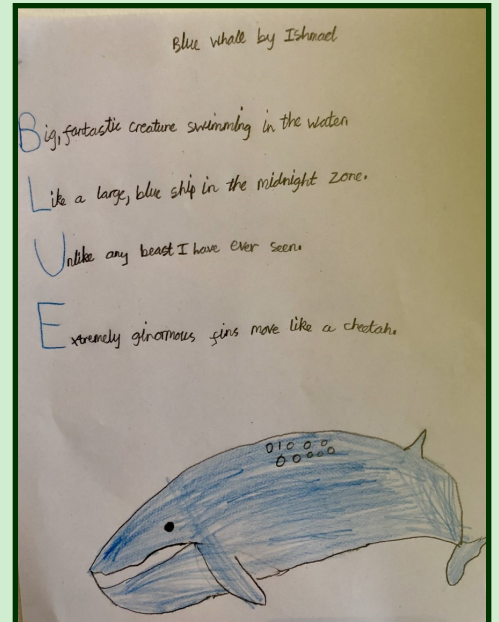 Blue whale by Ishmael
Big, fantastic creature swimming in the water
Like a large, blue ship in the midnight zone.
Unlike any beast I have ever seen.
Extremely ginormous fins move like a cheetah.